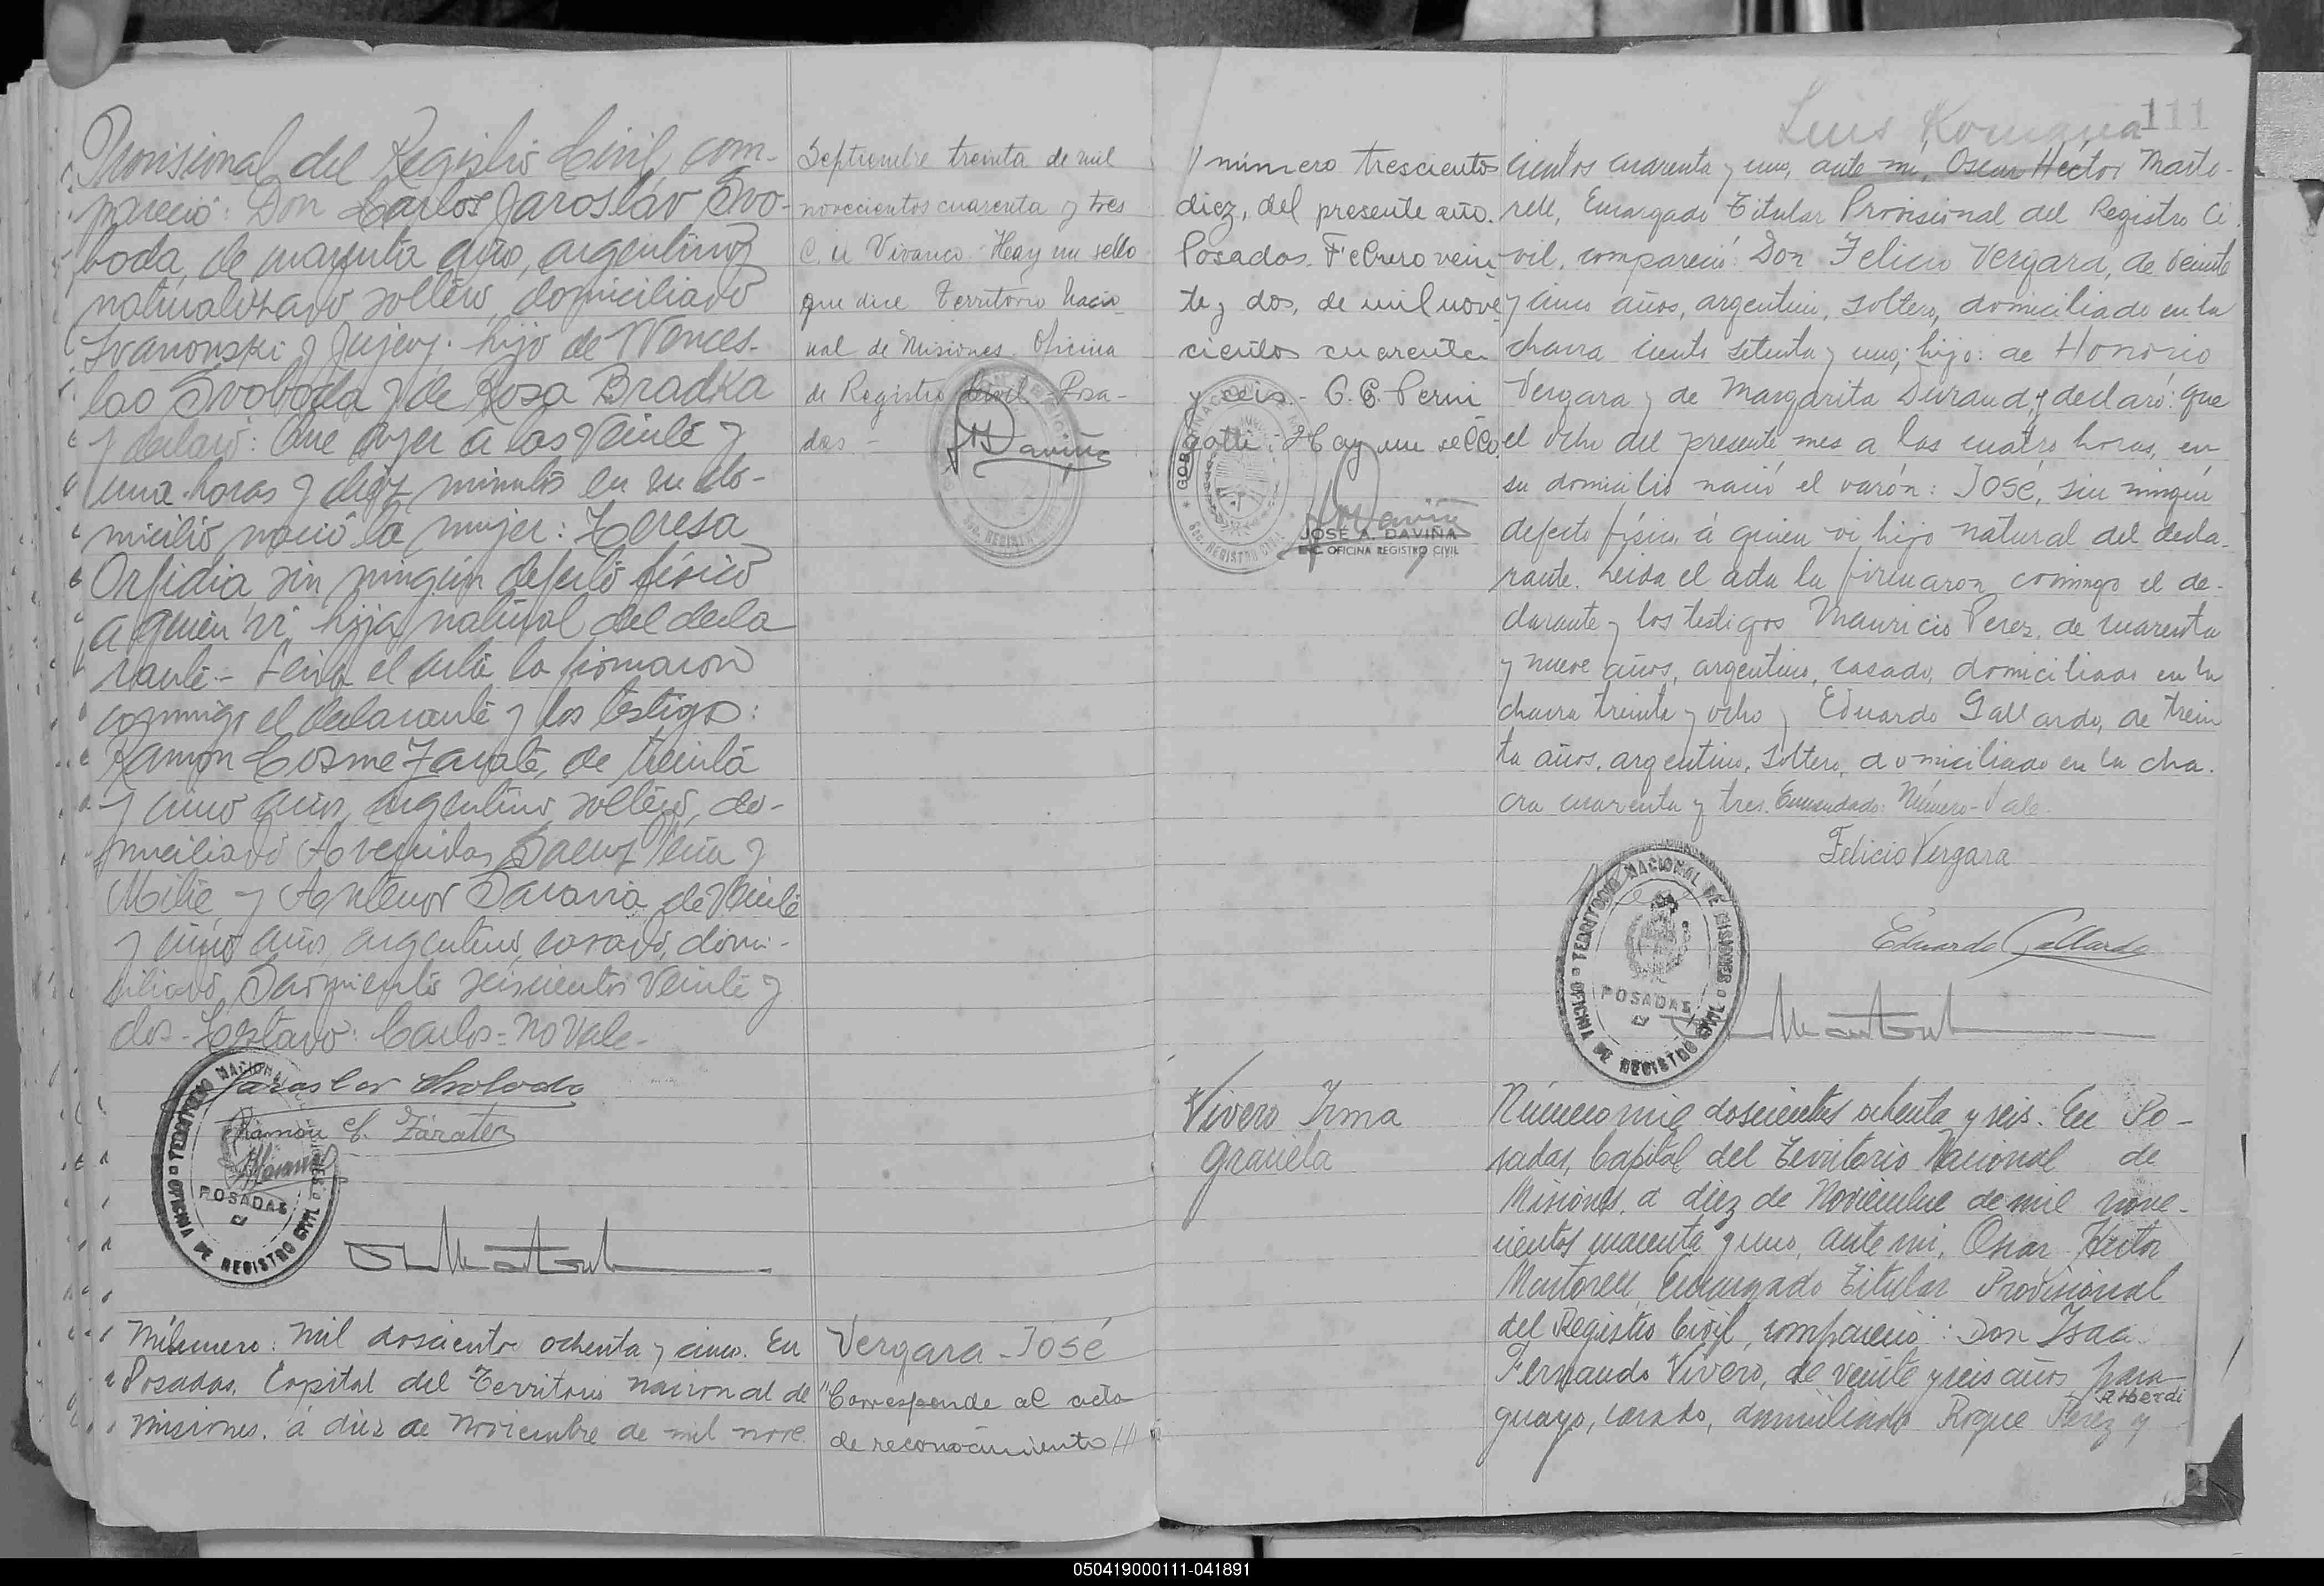 Provisional del Registro Civil, com-
pareció: Don Carlos Jaroslav Svo-
boda, de cuarenta años, argentino
naturalizado soltero, domiciliado
Ivanowski y Jujuy. hijo de Wences-
lao Svoboda y de Rosa Bradka
y declaró: Que ayer a las veinte y
una horas y diez minutos en su do-
micilio nació la mujer: Teresa
Orfidia sin ningún defecto físico
a quien vi hija natural del decla
rante.- Leída el acta la firmaron
conmigo el declarante y los testigos:
Ramon Cosme Zarate, de treinta
y cinco años, argentino, soltero, do-
miciliado Avenidas Saenz Peña y
Mitre, y Antenor Saravia, de veinte
y cinco años, argentino, casado, domi-
ciliado Sarmiento seiscientos veinte y
dos.- Testado: Carlos = No vale.-
Jaroslav Svoboda
Ramón C. Zárate
TERRITORIO NACIONAL DE MISIONES
POSADAS
OFICINA DE REGISTRO CIVIL
Número: mil doscientos ochenta y cinco. En
Posadas, Capital del Territorio nacional de
Misiones, a diez de Noviembre de mil nove
Septiembre treinta de mil
novecientos cuarenta y tres
C. U Vivanco. Hay un sello
que dice Territorio Nacio
nal de Misiones. Oficina
de Registro Civil Posa-
das -
Vergara - José
"Corresponde al acta
de reconocimiento ///
/ número trescientos
diez, del presente año.
Posadas. Febrero vein
te y dos, de mil nove
cientos cuarenta
y seis.-
Hay un sello
JOSÉ A. DAVIÑA
ENC. OFICINA REGISTRO CIVIL
Vivero Irma
Graciela
111
cientos cuarenta y uno, ante mi, Oscar Héctor Marto-
rell, Encargado Titular Provisional del Registro Ci
vil, compareció: Don Felicio Vergara, de veinte
y cinco años, argentino, soltero, domiciliado en la
chacra ciento setenta y uno; hijo: de Honorio
Vergara y de Margarita Durand, y declaró: que
el ocho del presente mes a las cuatro horas, en
su domicilio nació el varón: José, sin ningún
defecto físico á quien vi hijo natural del decla-
rante. Leída el acta la firmaron conmigo el de-
clarante y los testigos Mauricio Perez, de cuarenta
y nueve años, argentino, casado, domiciliado en la
chacra treinta y ocho y Eduardo Gallardo, de trein
ta años, argentino, soltero, domiciliado en la cha-
cra cuarenta y tres. Enmendado: Número - Vale.
Felicio Vergara
Eduardo Gallardo
TERRITORIO NACIONAL DE MISIONES
POSADAS
OFICINA DE REGISTRO CIVIL
Número mil doscientos ochenta y seis. En Po-
sadas, Capital del Territorio Nacional de
Misiones, a diez de Noviembre de mil nove-
cientos cuarenta y uno, ante mi, Oscar Hector
Martorell, Encargado Titular Provisional
del Registro Civil, compareció: Don Isaac
Fernando Vivero, de veinte y seis años para
guayo, casado, domiciliado Roque Perez y
Alberdi
050419000111-041891